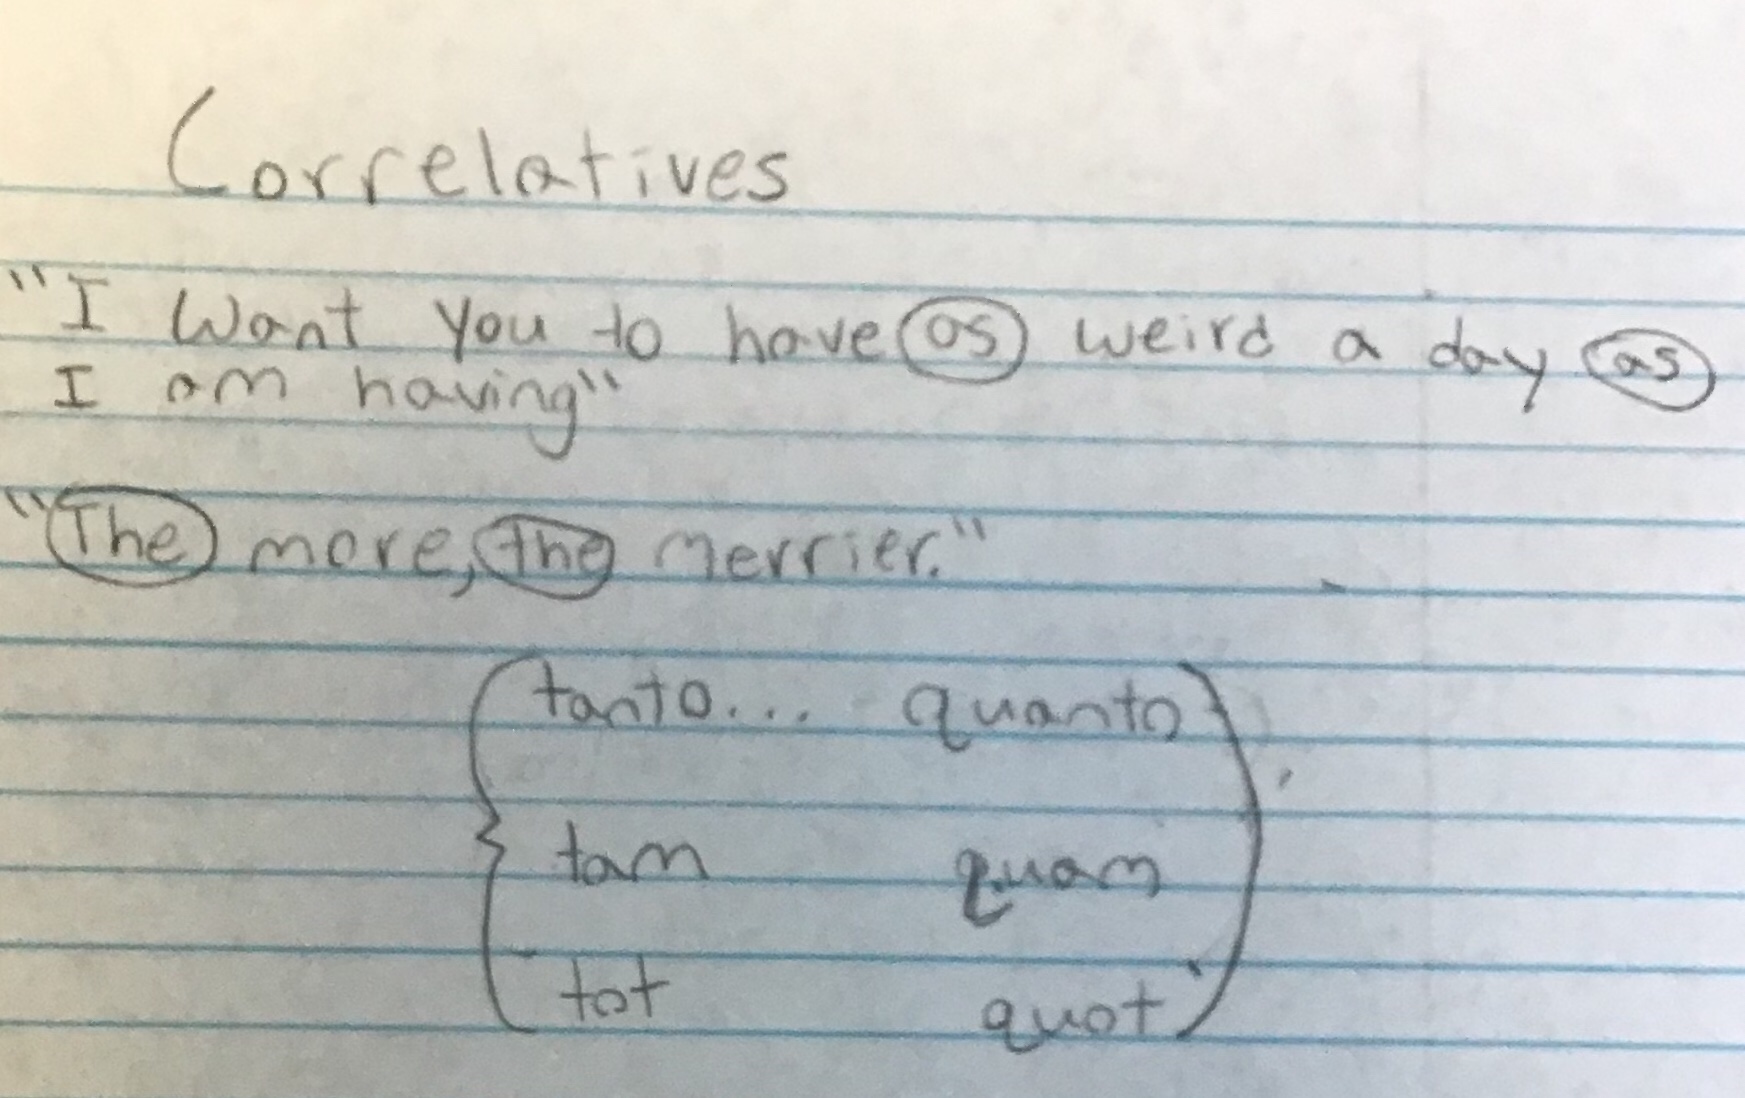 Correlatives
"I want you to have as weird a day as
I am having"
"The more, the merrier."
tanto... quanto
tam quam
tot quot